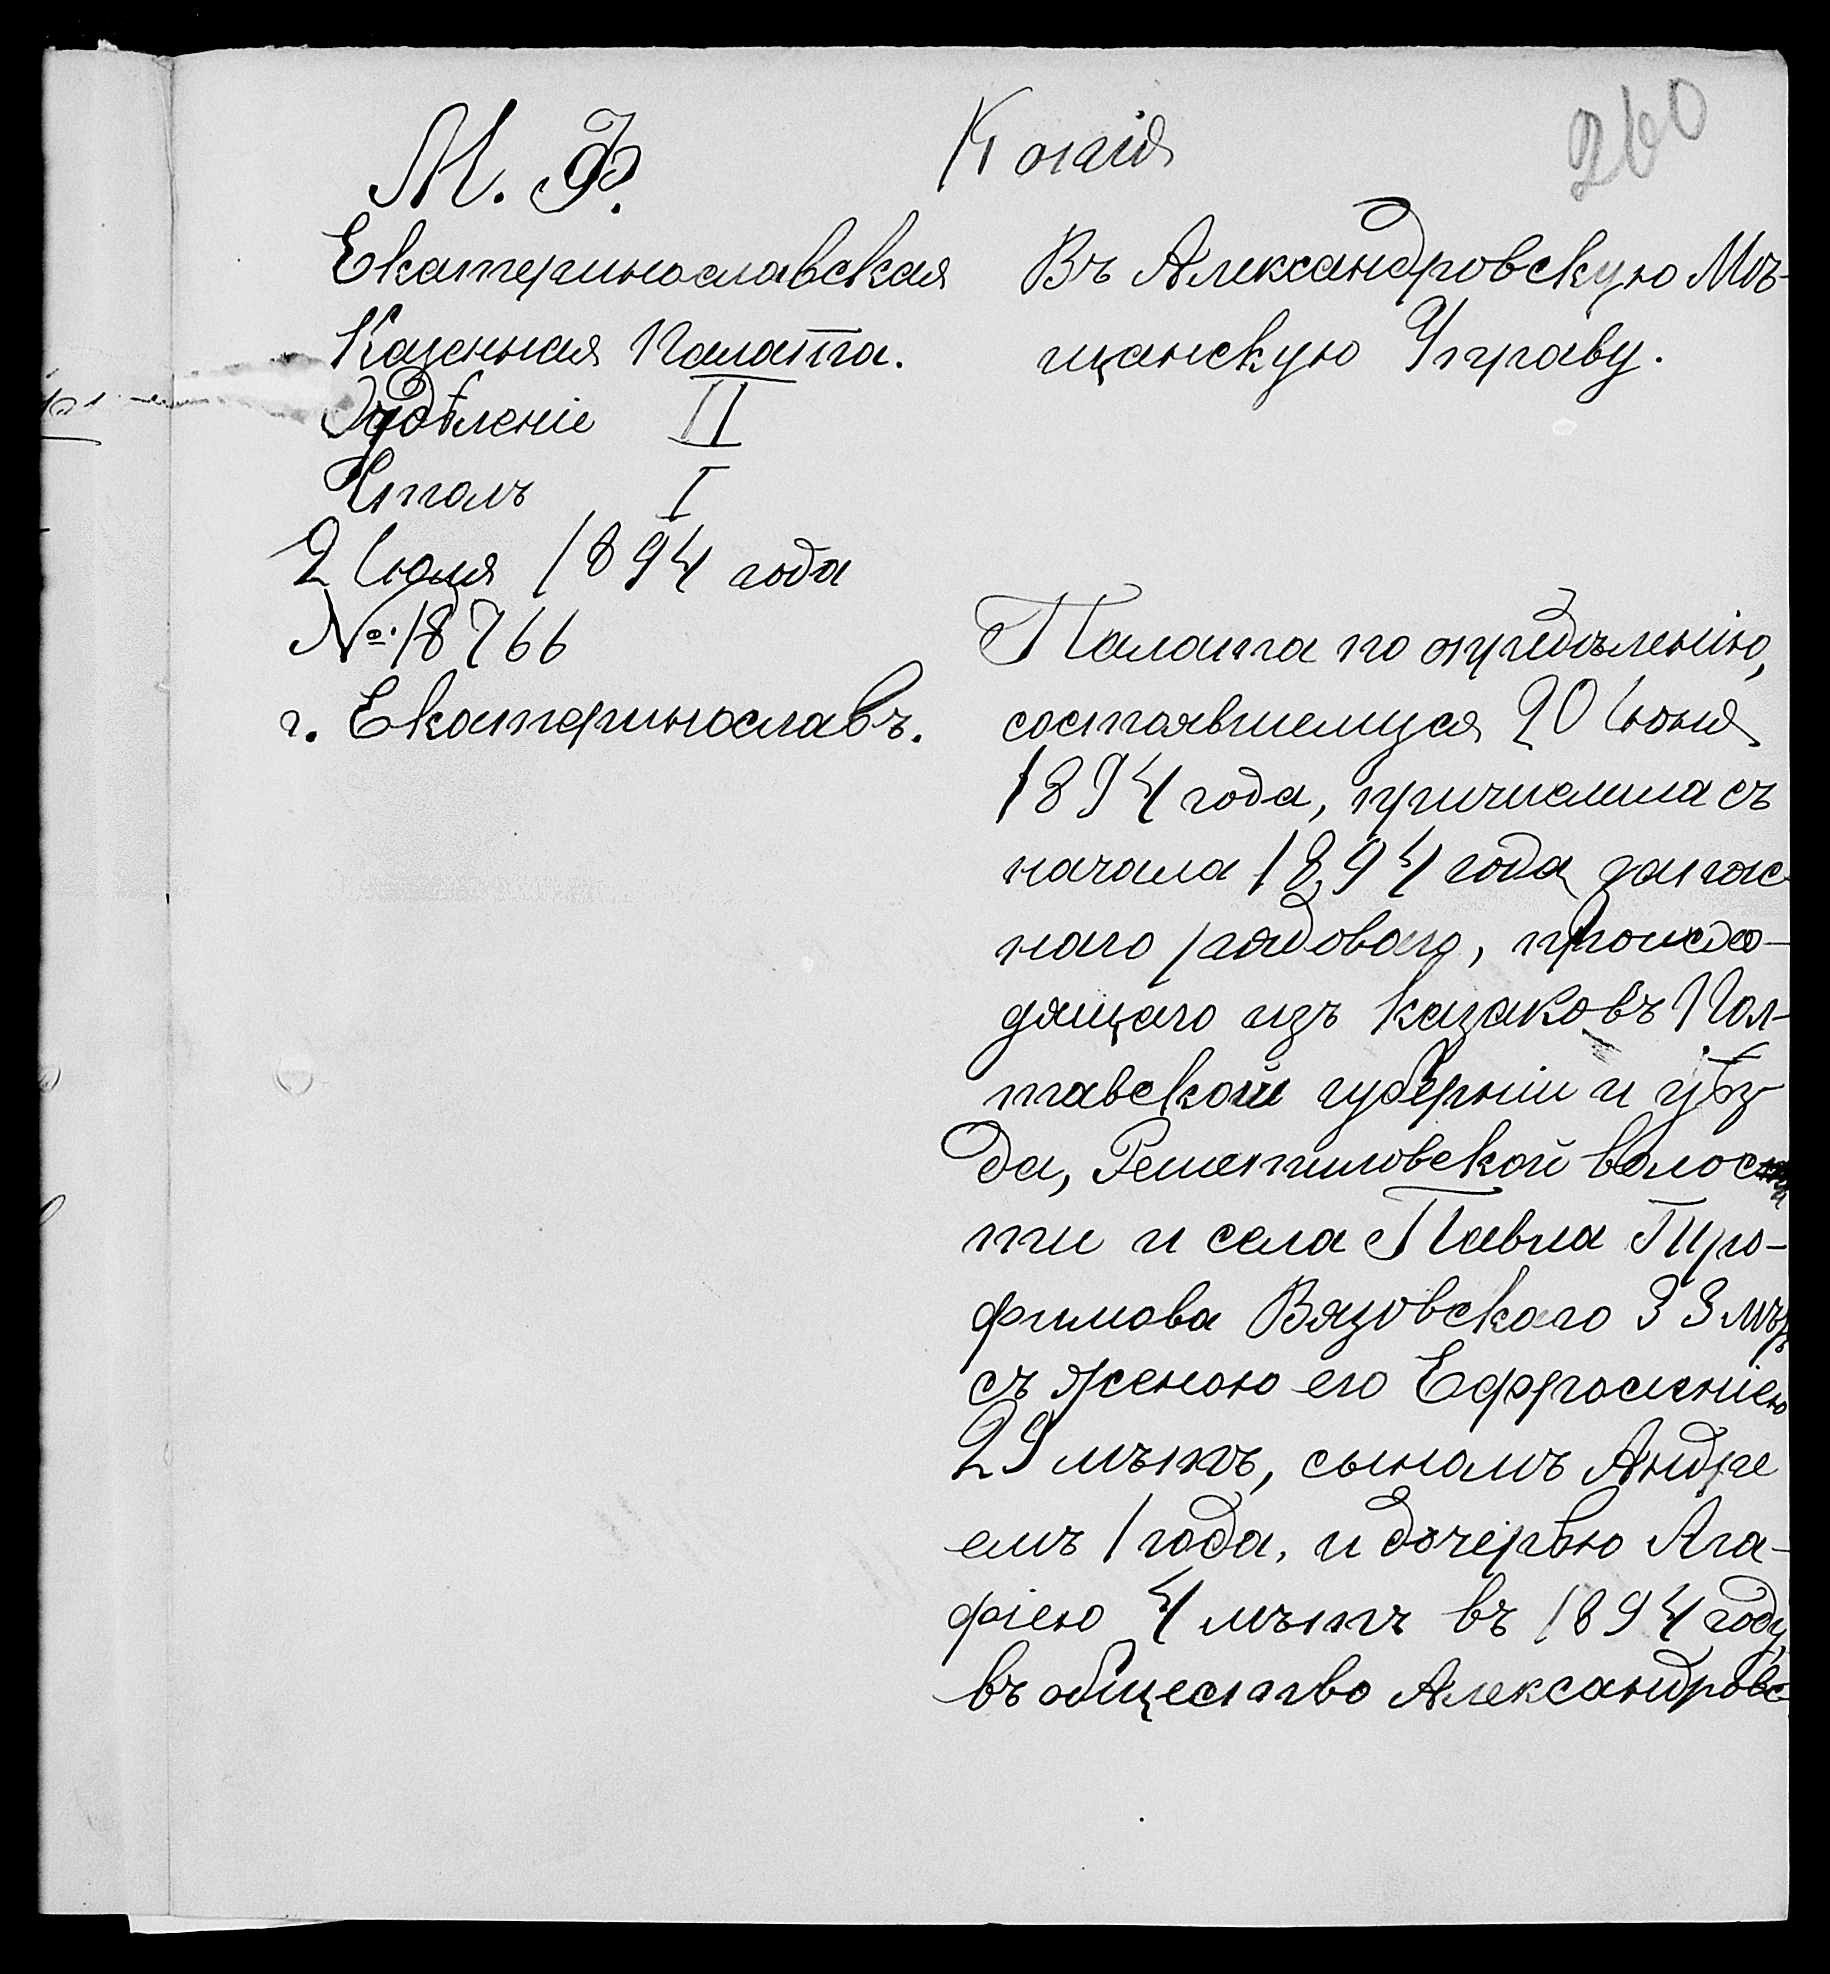 260
Копія
М. Ф.
Екатеринославская
Казенная Палата.
Отдѣленіе II
Столъ I
2 Іюля 1894 года
№ 18766
г. Екатеринославъ.
Въ Александровскую Мѣ-
щанскую Управу.
Палата по опредѣленію,
состоявшемуся 20 Іюня
1894 года, причислила съ
начала 1894 года запас-
наго рядоваго, происхо-
дящаго изъ казаковъ Пол-
тавской губерніи и уѣз
да, Решетиловской волос
ти и села Павла Тро-
фимова Вязовскаго 33 лѣтъ
съ женою его Ефросиніею
29 лѣтъ, сыномъ Андре
емъ 1 года, и дочерью Ага-
фіею 4 лѣтъ въ 1894 году,
въ общество Александровс-